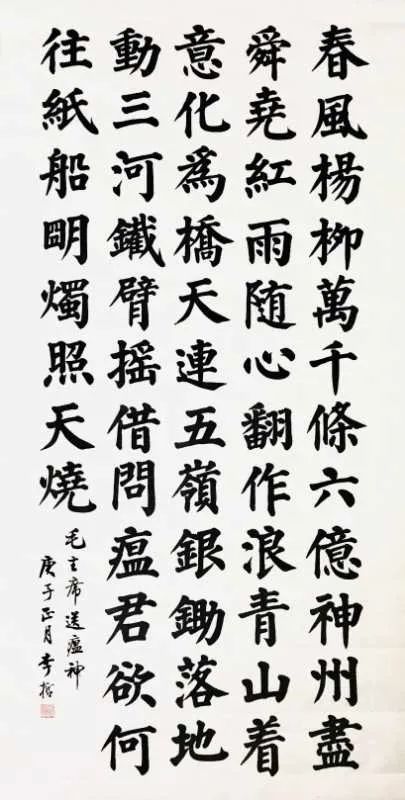 春風楊柳萬千條六億神州盡
舜堯紅雨随心翻作浪青山着
意化爲橋天連五嶺銀鋤落地
動三河鐵臂摇借問瘟君欲何
往紙船眀燭照天燒
毛主席送瘟神
庚子正月李